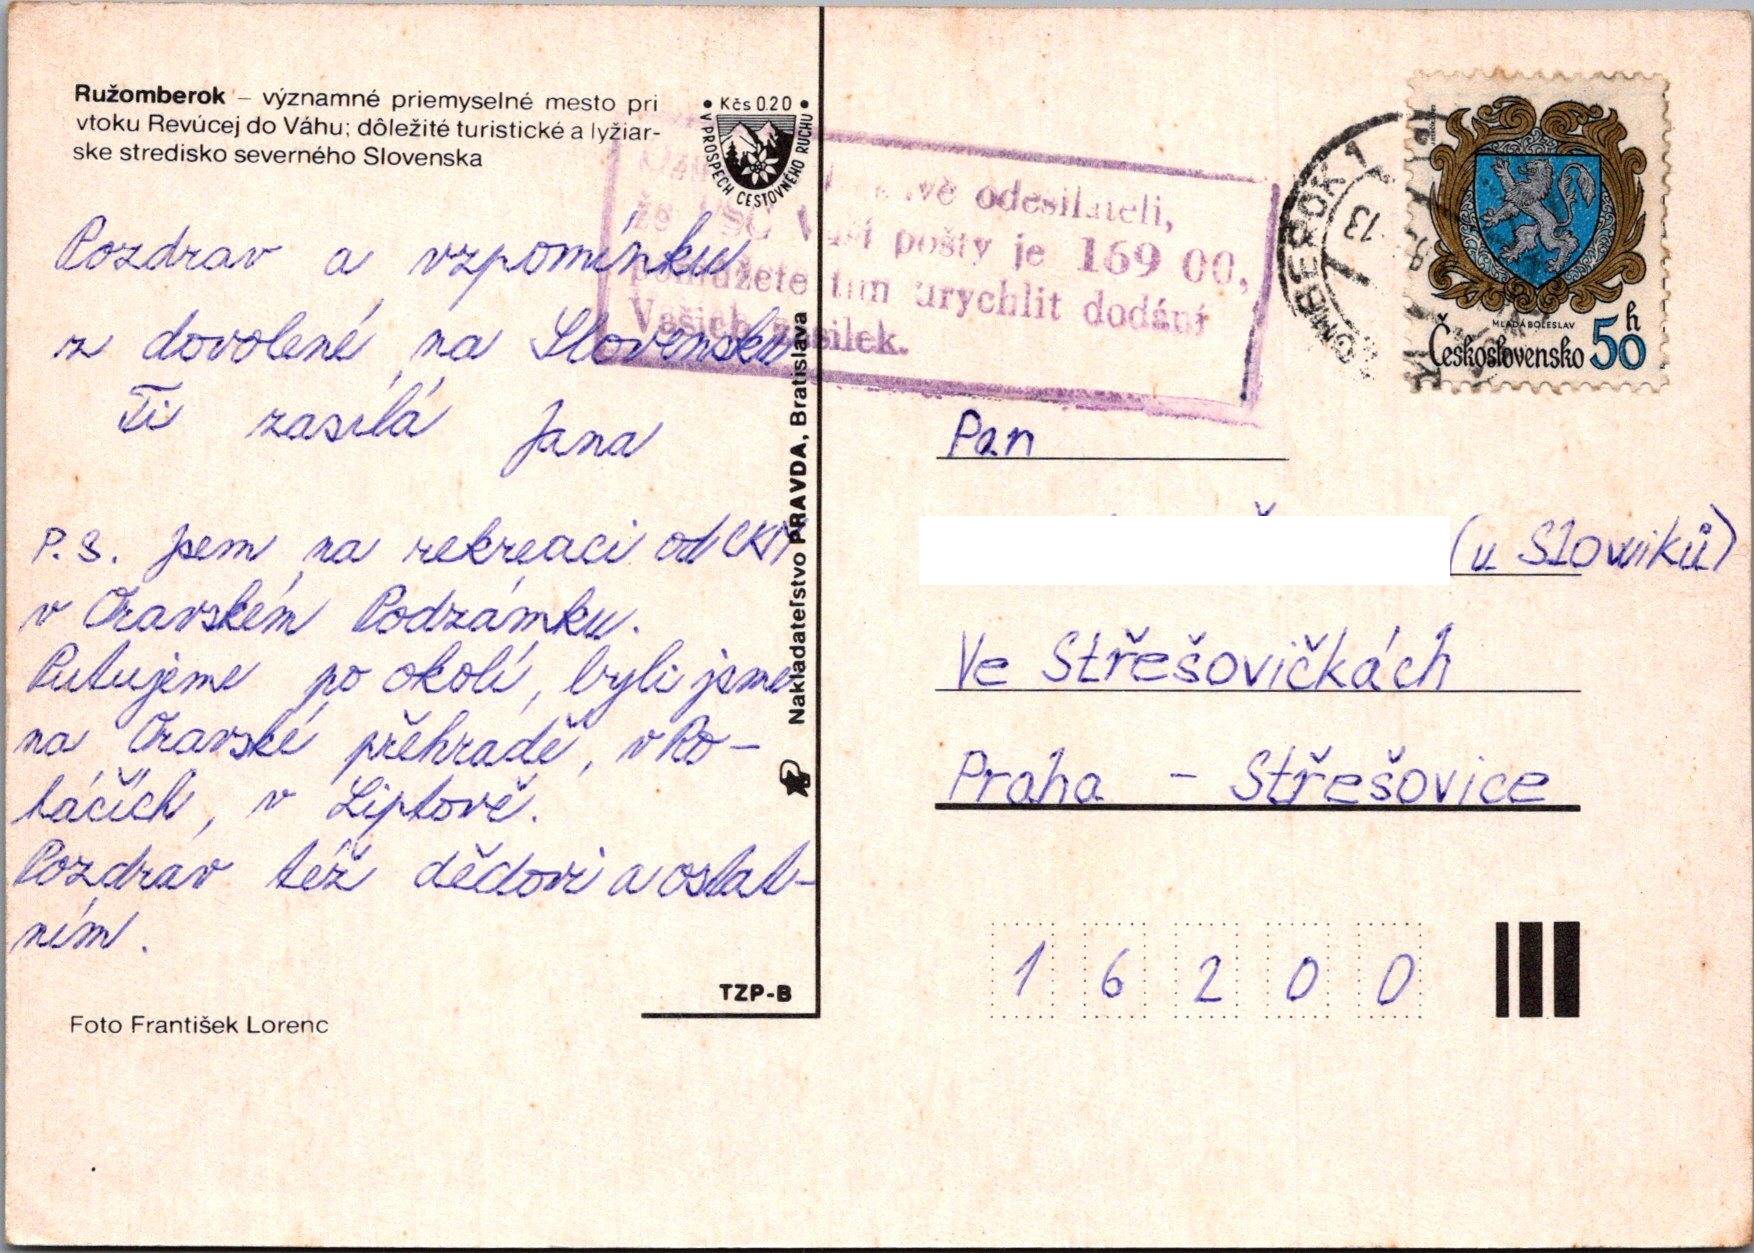 Ružomberok – významné priemyselné mesto pri
vtoku Revúcej do Váhu; dôležité turistické a lyžiar-
ske stredisko severného Slovenska
• Kčs 0.20 •
V PROSPECH CESTOVNÉHO RUCHU
Pozdrav a vzpomínku
z dovolené na Slovensku
Ti zasílá Jana
P.S. Jsem na rekreaci od CKM
v Oravském Podzámku.
Putujeme po okolí, byli jsme
na Oravské přehradě, v Ro-
háčích, v Liptově.
Pozdrav též dědovi a ostat-
ním.
Foto František Lorenc
TZP-B
Nakladateľstvo PRAVDA, Bratislava
odesílateli,
že PSČ Vaší pošty je 169 00,
pomůžete tím urychlit dodání
Vašich zásilek.
RUŽOMBEROK 1
13
MLADÁ BOLESLAV
Československo 50 h
Pan
(u Slowiků)
Ve Střešovičkách
Praha - Střešovice
16200